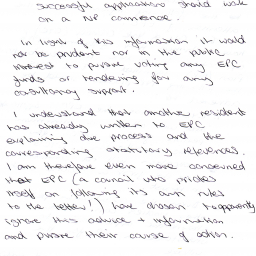 successful application should work
on a NP commence.
In light of this information it would
not be prudent nor in the public
interest to pursue voting any EPC
funds or tendering for any
consultancy support.
I understand that another resident
has already written to EPC
explaining due process and the
corresponding statutory references.
I am therefore even more concerned
that EPC (a council who prides
itself on following its own rules
to the letter!) have chosen to apparently
ignore this advice + information
and pursue their cause of action.